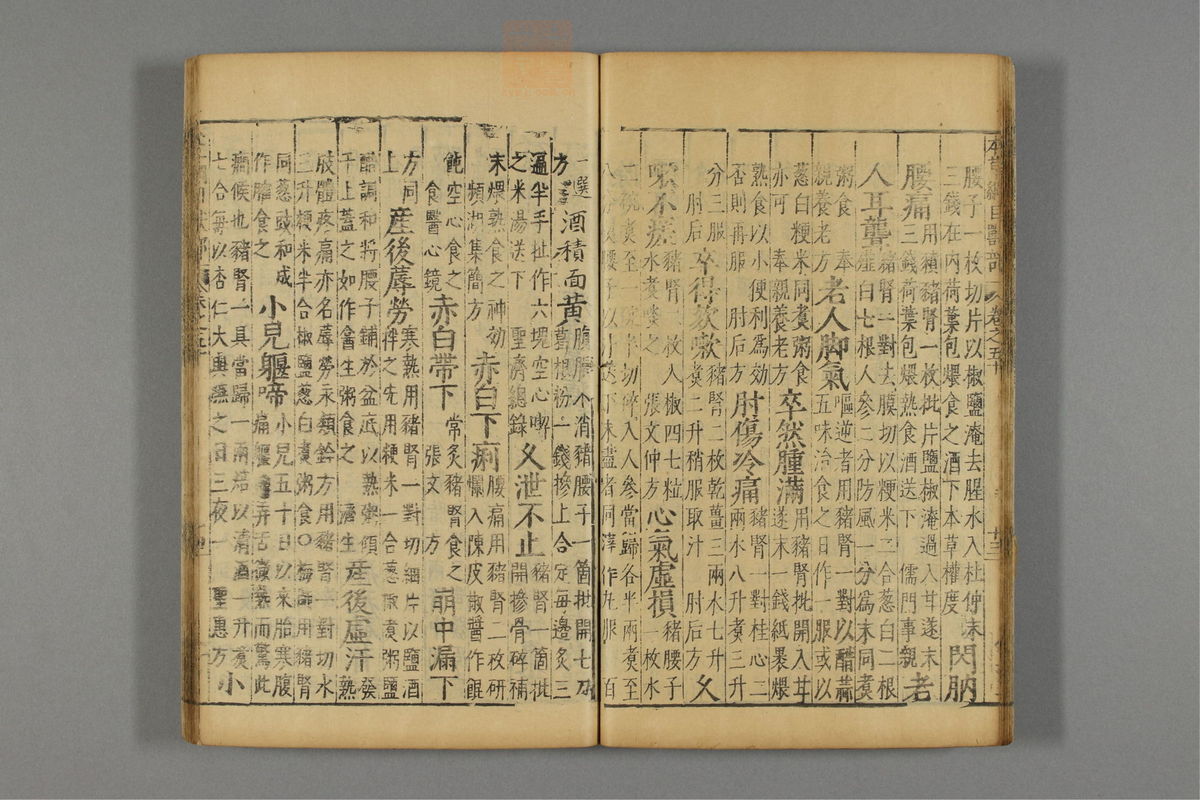 腰子一枚切片以椒鹽淹去腥水入杜仲末
三錢在內荷葉包煨食之酒下本草權度 閃肭
腰痛用豶豬腎一枚批片鹽椒淹過入甘遂末
三錢荷葉包煨熟食酒送下儒門事親 老
人耳聾豬腎一對去膜切以粳米二合葱白二根
薤白七根人參二分防風一分爲末同煮
粥食奉親養老方 老人脚氣嘔逆者用豬腎一對以醋蒜
五味治食之日作一服或以
葱白粳米同煮粥食
亦可奉親養老方 卒然腫滿用豬腎批開入甘
遂末一錢紙裹煨
熟食以小便利爲效
否則再服肘后方 肘傷冷痛豬腎一對桂心二
兩水八升煮三升
分三服
肘后 卒得欬嗽豬腎二枚乾薑三兩水七升
煮二升稍服取汁肘后方 久
嗽不瘥豬腎二枚入椒四七粒
水煮啖之張文仲方 心氣虛損豬腰子
一枚水
二椀煮至一
切碎入人參當歸各半兩煮至
八
腰子以汁送下未盡者同滓作丸服百
一選
方 酒積面黃腹脹不消豬腰子一箇批開七刀
葛根粉一錢摻上合定每邊炙三
遍半手扯作六塊空心喫
之米湯送下聖濟總錄 久泄不止豬腎一箇批
開摻骨碎補
末煨熟食之神効
頻湖集簡方 赤白下痢腰痛用豬腎二枚研
爛入陳皮椒醬作餛
飩空心食之
食醫心鏡 赤白帶下常炙豬腎食之
張文 方 崩中漏下
方同
上 產後蓐勞寒熱用豬腎一對切細片以鹽酒
拌之先用粳米一合葱椒煮粥鹽
醋調和將腰子鋪於盆底以熱粥傾
于上蓋之如作禽生粥食之 濟生 產後虛汗發
熱
肢體疼痛亦名蓐勞永類鈐方用豬腎一對切水
三升粳米半合椒鹽葱白煮粥食○梅師用豬腎
同葱豉和成
作臛食之 小兒軀啼小兒五十日以來胎寒腹
痛軀啼弄舌微熱而驚此
癇候也豬腎一具當歸一兩焙以清酒一升煮
七合每以杏仁大與嚥之日三夜一聖惠方 小